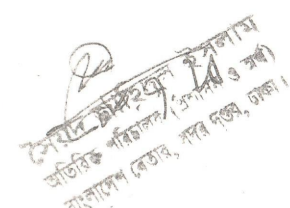 সৈয়দ ইসলাম
অতিরিক্ত পরিচালক (প্রশাসন ও অর্থ)
বাংলাদেশ বেতার, সদর দপ্তর, ঢাকা।